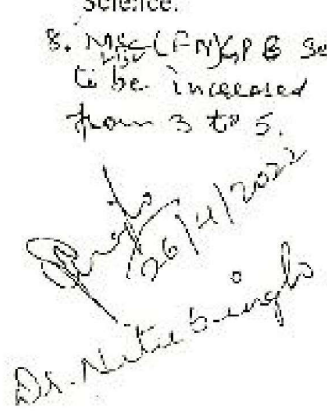 Science.
8. MSc (FN) GPB Se
to be increased
from 3 to 5.
26/4/2022
Dr. Nitu Singh